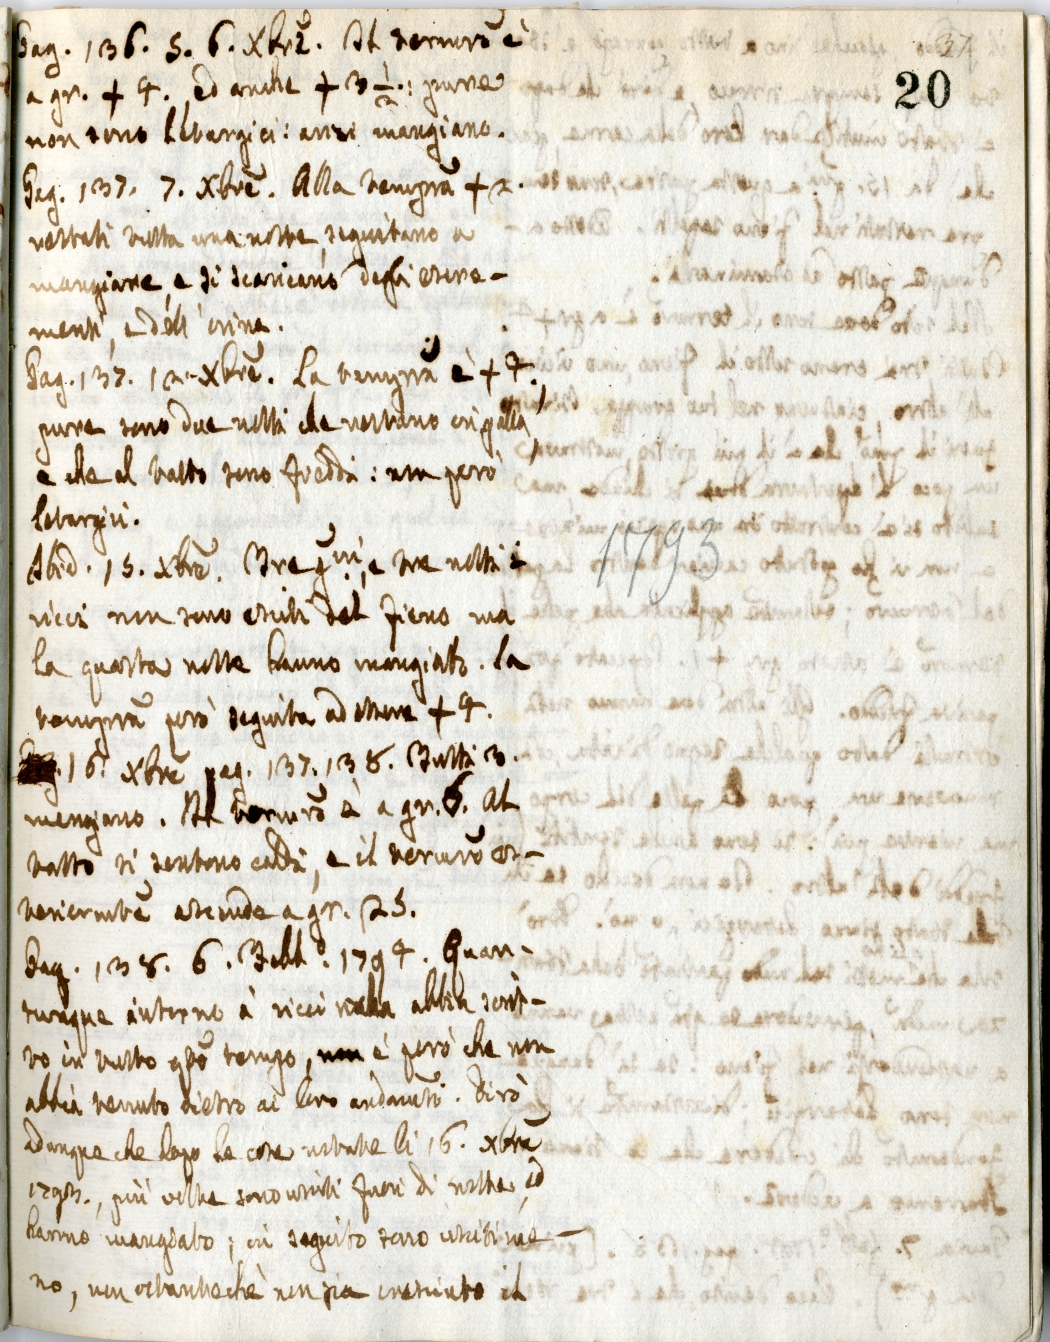 37
20
Pag. 136. 5. 6. Xbrẽ. Il termrõ è
a gr. + 4., ed anche + 3 1/2.: pure
non sono letargici: anzi mangiano.
Pag. 137. 7. Xbrẽ. Alla temprã + 2.
restati tutta una notte seguitano a
mangiare, e si scaricano degli escre-
menti, e dell' orina.
Pag. 137. 12. Xbrẽ. La temprã è + 4.
pure sono due notti che restano
e che al tatto sono freddi: non però
letargici.
Ibid. 15. Xbrẽ. Tre gni, e tre notti i
ricci non sono esciti dal fieno ma
la quarta notte hanno mangiato. La
temprã però seguita ad essere + 4.
16. Xbrẽ pag. 137. 138. Tutti 3.
mangiano. Il termrõ è a gr. 6. Al
tatto si sentono caldi, e il termrõ es-
teriormtẽ ascende a gr. 25.
Pag. 138. 6. Febb.º 1794. Quan-
tunque intorno à ricci nulla abbia scrit-
to in tutto qstõ tempo, non è però che non
abbia tenuto dietro ai loro andamti. Dirò
adunque che dopo le cose notate li 16. Xbrẽ
1793., più volte sono usciti fuori di notte, ed
hanno mangiato; in seguito sono usciti me-
no, non ostantechè non sia cresciuto il
1793